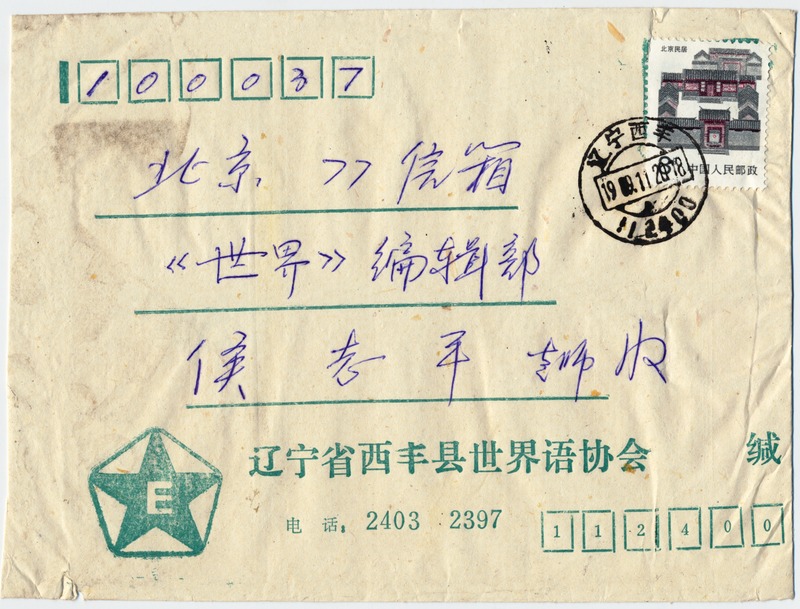 100037
北京民居
中国人民邮政
辽宁西丰
112400
北京 77 信箱
《世界》编辑部
侯志平
辽宁省西丰县世界语协会 缄
E
电 话: 2403 2397
112400